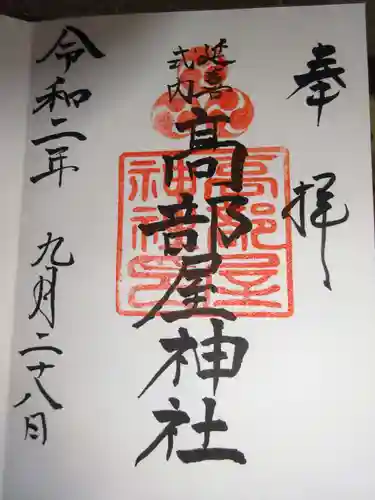 奉拝
延喜
式内
髙部屋神社
髙部屋
神社印
令和二年 九月二十八日